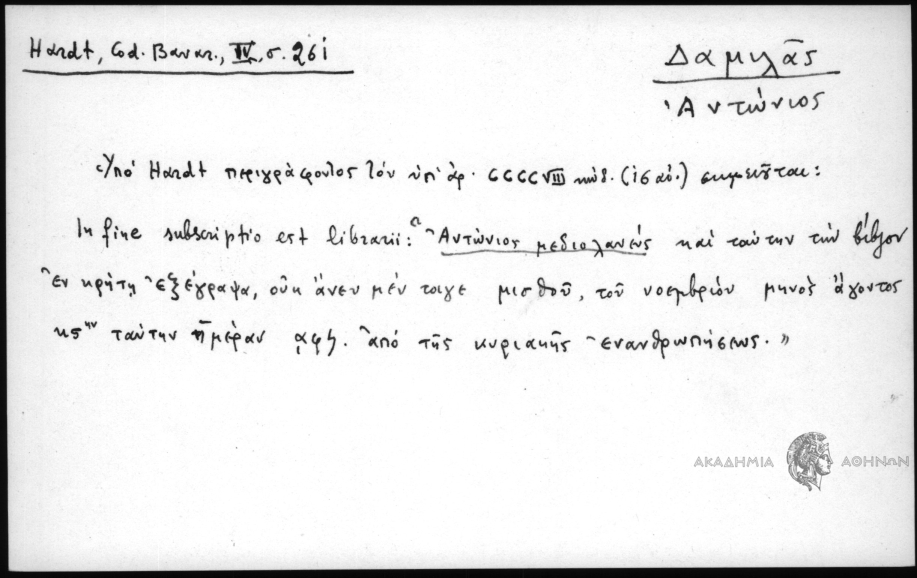 Hardt, Cod. Bavar., IV, σ. 261
Δαμιλᾶς
Ἀντώνιος
Ὑπό Hardt περιγράφοντος τόν ὑπ' ἀρ. CCCCVIII κώδ. (ις αἰ.) σημειοῦται:
In fine subscriptio est librarii: "Ἀντώνιος μεδιολανεύς καί ταύτην τήν βίβλον
ἐν κρήτῃ ἐξέγραψα, οὐκ ἄνευ μέν τοιγε μισθοῦ, τοῦ νοεμβρίου μηνός ἄγοντος
κςην ταύτην ἡμέραν ἀπό τῆς κυριακῆς ἐνανθρωπήσεως.»
ΑΚΑΔΗΜΙΑ ΑΘΗΝΩΝ